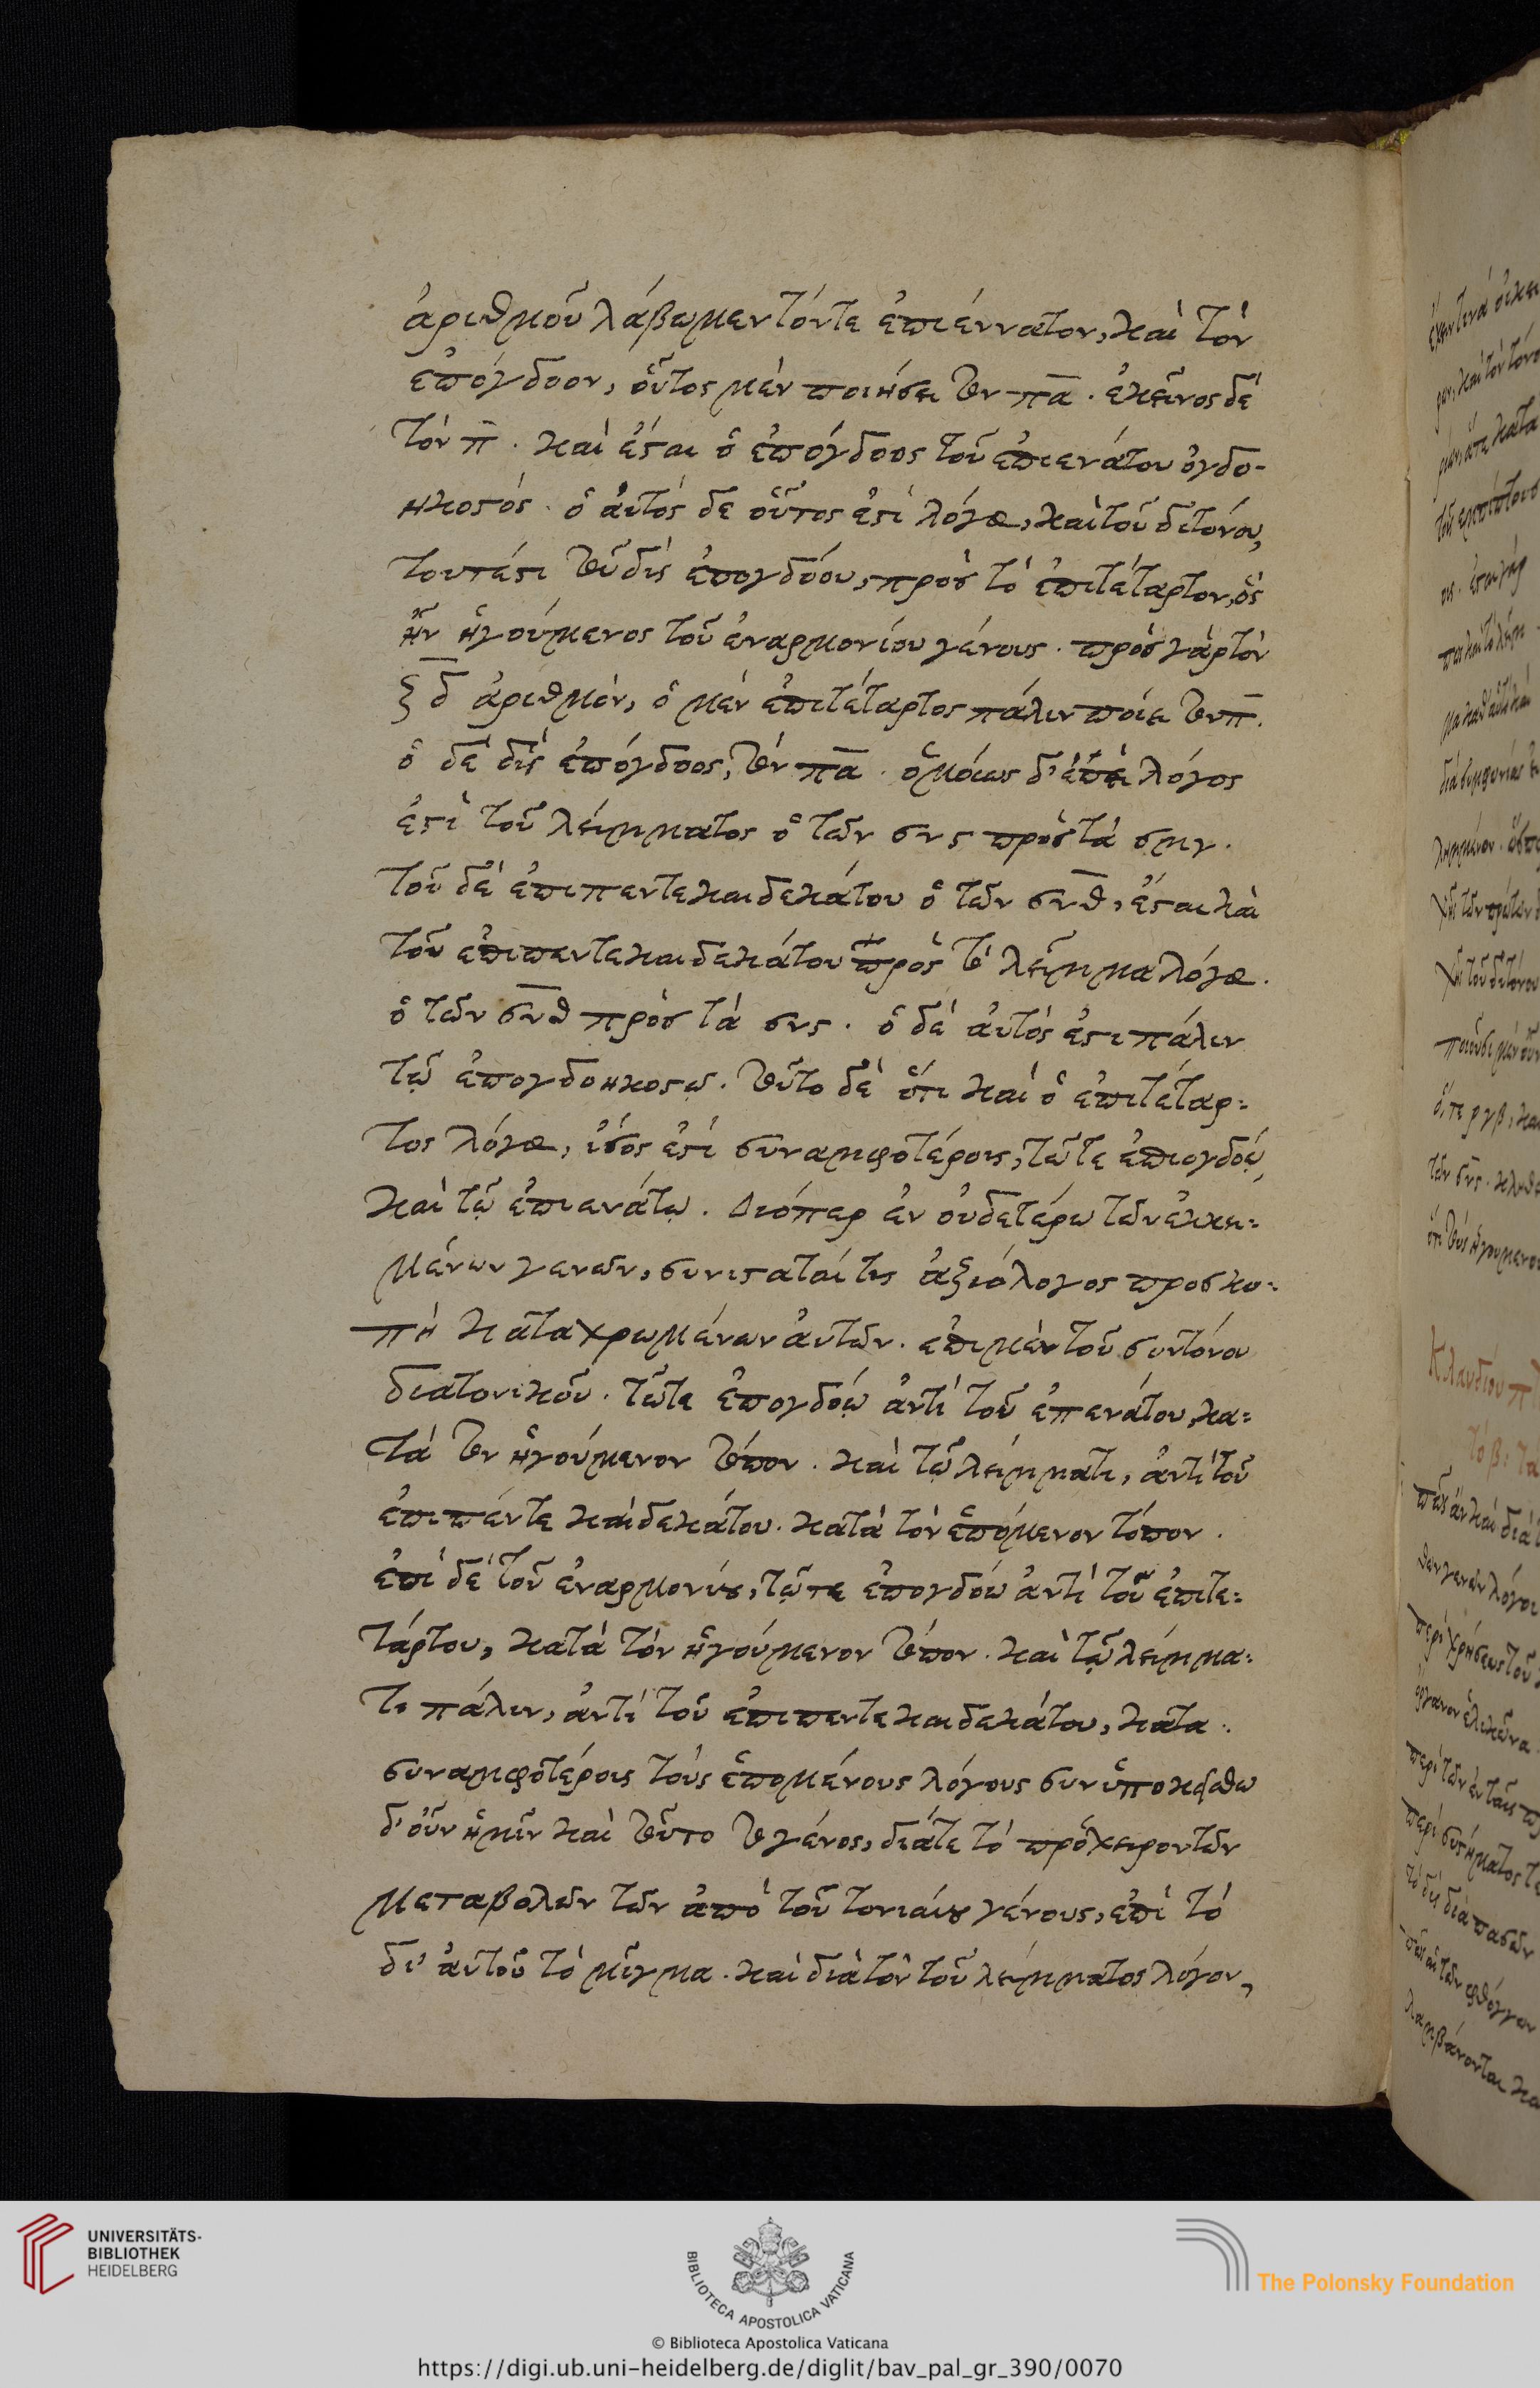 ἀριθμοῦ λάβωμεν τόν τε ἐπιέννατον, καὶ τὸν
ἐπόγδοον, οὗτος μὲν ποιήσει τὸν π̅α̅. ἐκεῖνος δὲ
τὸν π̅. καὶ ἔσται ὁ ἐπόγδοος τοῦ ἐπιενάτου ὀγδο-
ηκοστός. ὁ ἀυτὸς δε οὗτος ἐστὶ λόγος, καὶ τοῦ διτόνου,
τουτέστι τοῦ δὶς ἐπογδόου, πρὸς τὸ ἐπιτέταρτον, ὃς
ἦν ἡγούμενος τοῦ ἐναρμονίου γένους. πρὸς γὰρ τὸν
ξ̅δ̅ ἀριθμὸν, ὁ μὲν ἐπιτέταρτος πάλιν ποίει τὸν π̅.
ὁ δὲ δὶς ἐπόγδοος, τὸν π̅α̅. ὁμόιως δ' ἐπεὶ λόγος
ἐστὶ τοῦ λείμματος ὁ τῶν σνς πρὸς τὰ σμγ.
τοῦ δὲ ἐπιπεντεκαιδεκάτου ὁ τῶν σν̅θ̅, ἔσται καὶ
τοῦ ἐπιπεντεκαιδεκάτου πρὸς τὸ λεῖμμα λόγος.
ὁ τῶν σν̅θ̅ πρὸς τὰ σνς. ὁ δὲ ἀυτὸς ἐστι πάλιν
τῷ ἐπογδοηκοστῳ. τοῦτο δὲ ὅτι καὶ ὁ ἐπιτέταρ-
τος λόγος, ἴσος ἐστὶ συναμφοτέροις, τῶ τε ἐπιογδόῳ,
καὶ τῷ ἐπιενάτῳ. Διόπερ ἐν οὐδετέρω τῶν ἐκκει-
μένων γενῶν, συνισταταί τις ἀξιόλογος προσκο-
πὴ καταχρωμένων ἀυτῶν. ἐπι μὲν τοῦ συντόνου
διατονικοῦ. τῶ τε ἐπογδόῳ ἀντὶ τοῦ ἐπενάτου, κα-
τὰ τὸν ἡγούμενον τόπον. καὶ τῷ λείμματι, ἀντὶ τοῦ
ἐπιπέντε καὶ δεκάτου. κατὰ τὸν ἑπόμενον τόπον.
ἐπὶ δὲ τοῦ ἐναρμονίου, τῷ τε ἐπογδόω ἀντὶ τοῦ ἐπιτε-
τάρτου, κατὰ τὸν ἡγούμενον τόπον. καὶ τῷ λείμμα-
τι πάλιν, ἀντὶ τοῦ ἐπιπεντεκαιδεκάτου, κατα
συναμφοτέροις τοὺς ἑπομένους λόγους συνὑποκείσθω
δ' οὖν ἡμῖν καὶ τοῦτο τὸ γένος, διά τε τὸ πρόχειρον τῶν
μεταβολῶν τῶν ἀπὸ τοῦ τονιάιου γένους, ἐπὶ τὸ
δι' ἀυτοῦ τὸ μῖγμα. καὶ διὰ τὸν τοῦ λείμματος λόγον,
Κλαυδίου
UNIVERSITÄTS-
BIBLIOTHEK
HEIDELBERG
BIBLIOTECA APOSTOLICA VATICANA
© Biblioteca Apostolica Vaticana
The Polonsky Foundation
https://digi.ub.uni-heidelberg.de/diglit/bav_pal_gr_390/0070